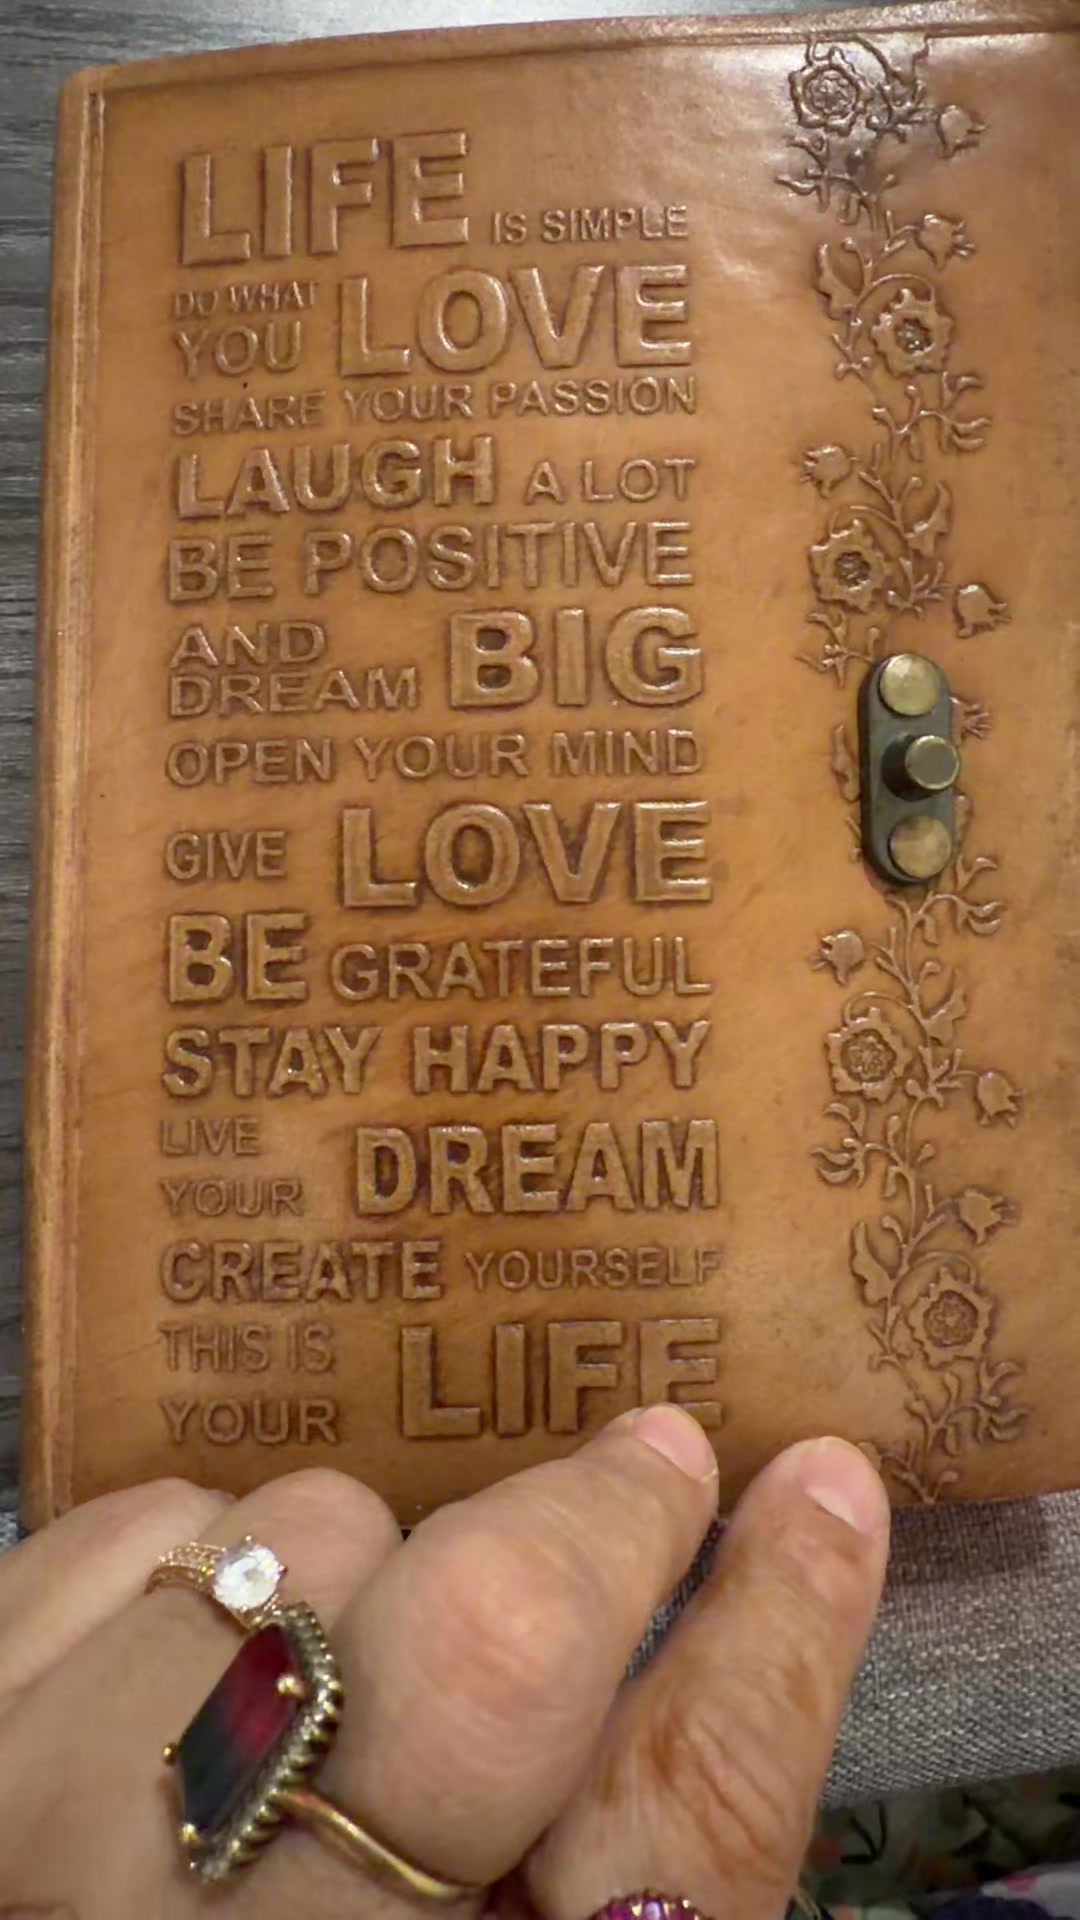 LIFE IS SIMPLE
DO WHAT
YOU LOVE
SHARE YOUR PASSION
LAUGH A LOT
BE POSITIVE
AND
DREAM BIG
OPEN YOUR MIND
GIVE LOVE
BE GRATEFUL
STAY HAPPY
LIVE
YOUR DREAM
CREATE YOURSELF
THIS IS
YOUR LIFE